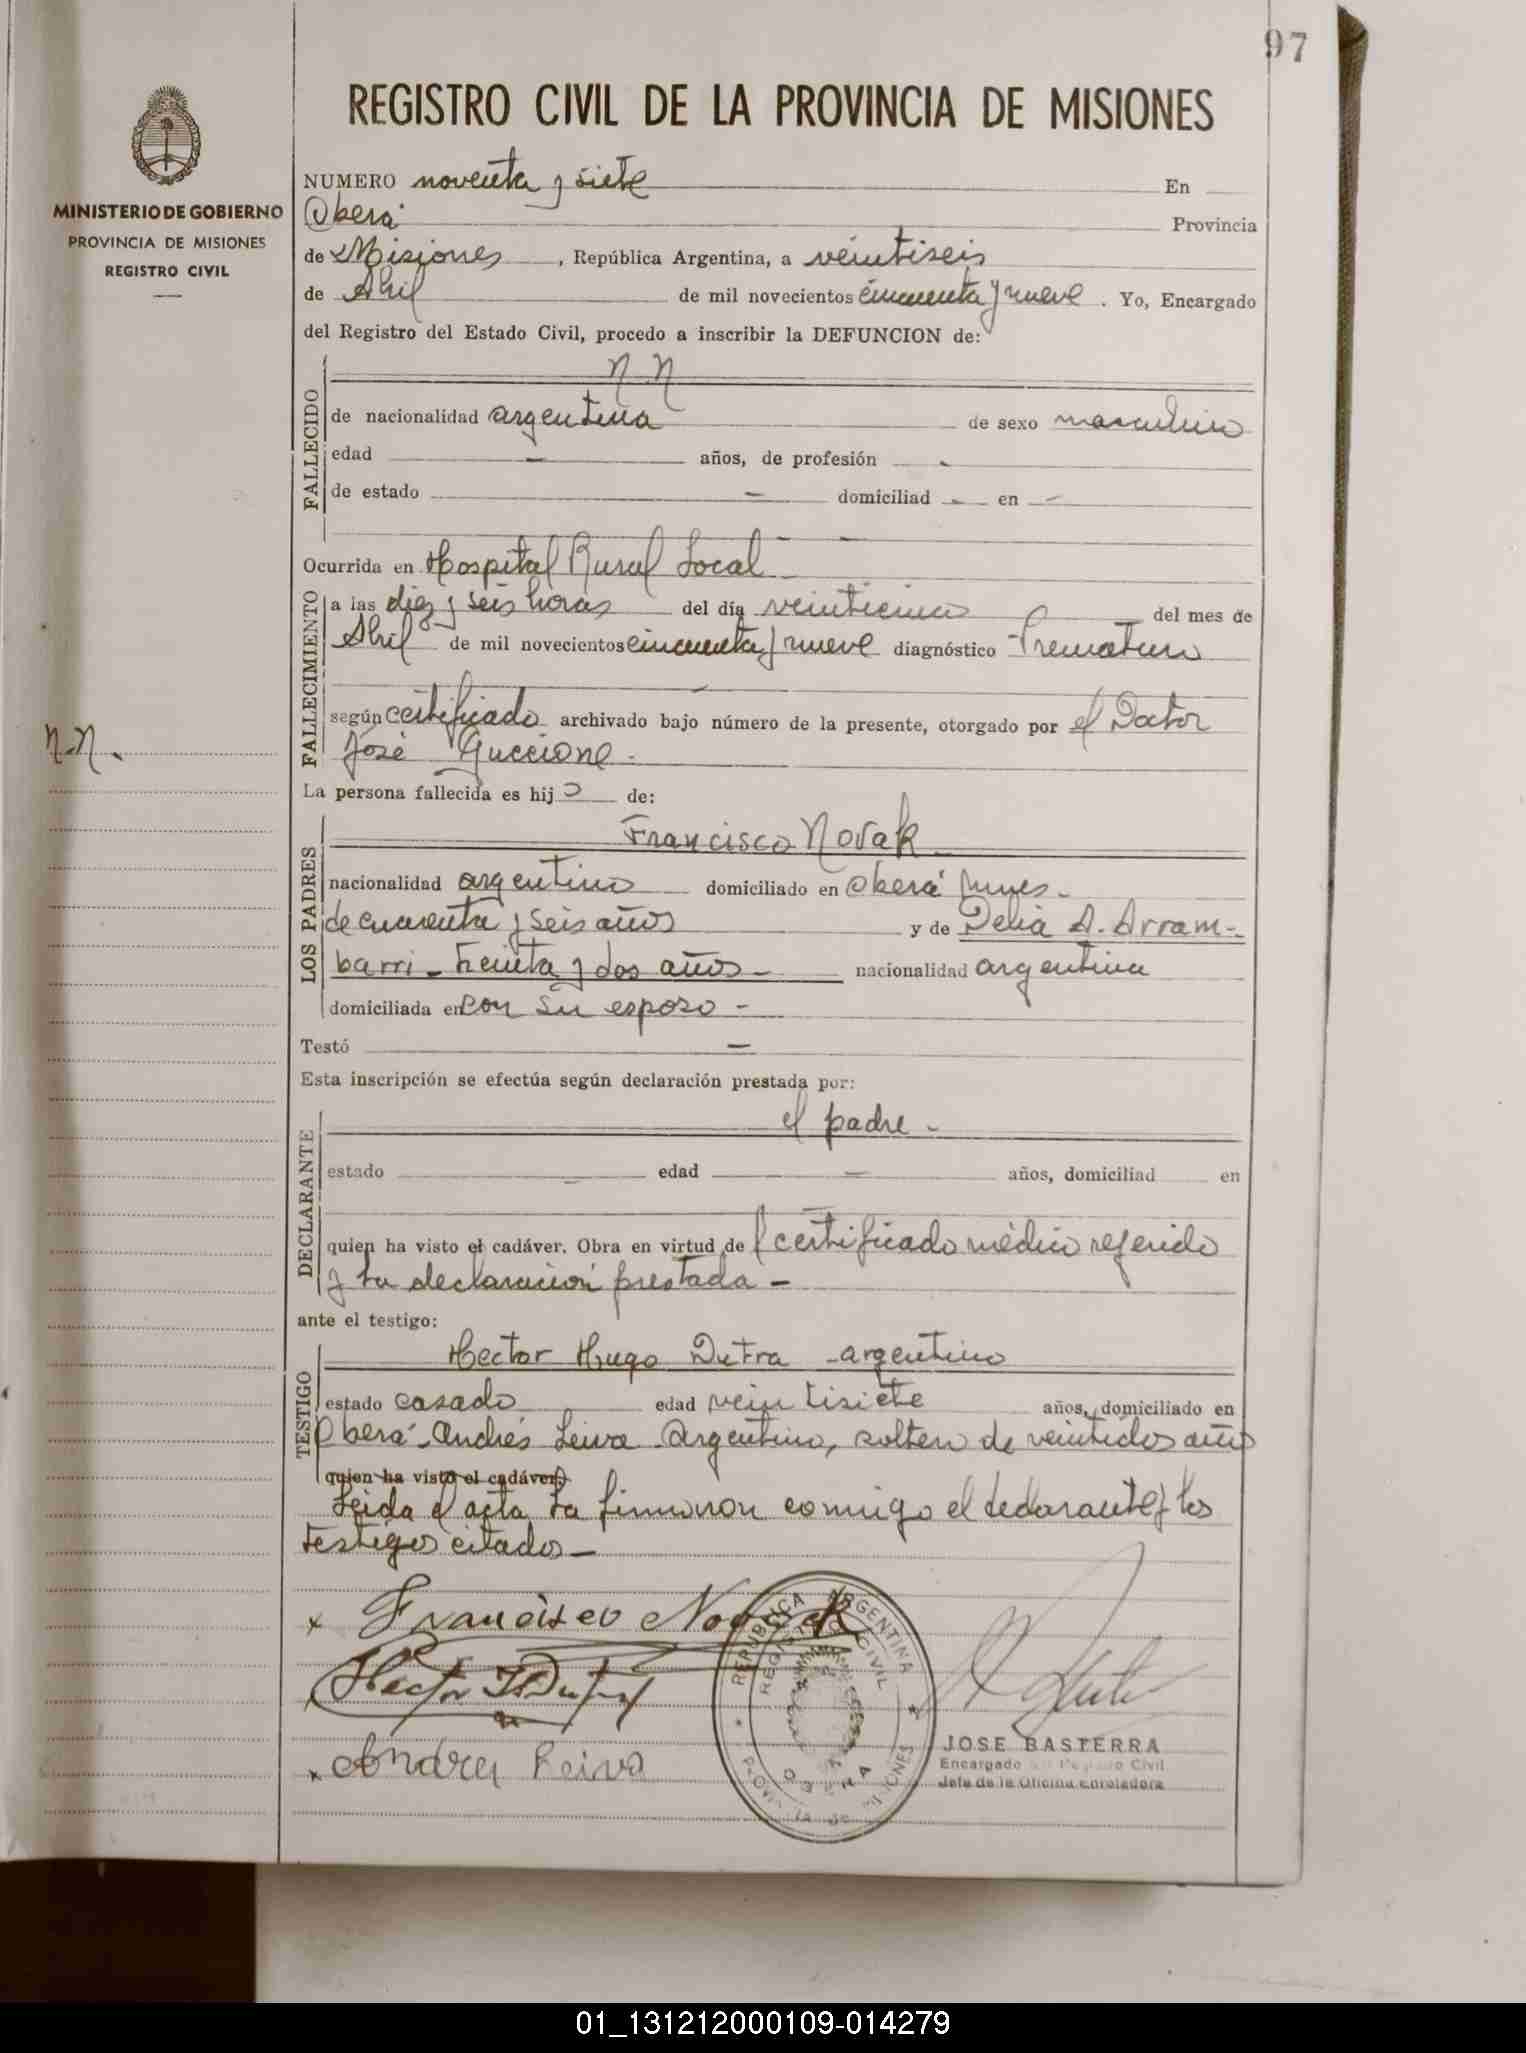 97
REGISTRO CIVIL DE LA PROVINCIA DE MISIONES
MINISTERIO DE GOBIERNO
PROVINCIA DE MISIONES
REGISTRO CIVIL
NUMERO noventa y siete En
Oberá Provincia
de Misiones, República Argentina, a veintiseis
de Abril de mil novecientos cincuenta y nueve. Yo, Encargado
del Registro del Estado Civil, procedo a inscribir la DEFUNCION de:
FALLECIDO
N N
de nacionalidad argentina de sexo masculino
edad - años, de profesión -
de estado - domiciliad - en -
-
Ocurrida en Hospital Rural Local -
FALLECIMIENTO
a las diez y seis horas del día veinticinco del mes de
Abril de mil novecientos cincuenta y nueve diagnóstico Prematuro
-
según certificado archivado bajo número de la presente, otorgado por el Doctor
José Guccione -
N.N.
La persona fallecida es hij o de:
LOS PADRES
Francisco Novak
nacionalidad argentino domiciliado en Oberá
de cuarenta y seis años y de Delia A. Arram-
barri - treinta y dos años - nacionalidad argentina
domiciliada en con su esposo -
Testó -
Esta inscripción se efectúa según declaración prestada por:
DECLARANTE
el padre -
estado - edad - años, domiciliad en
quien ha visto el cadáver. Obra en virtud de l certificado médico referido
y la declaración prestada -
ante el testigo:
TESTIGO
Hector Hugo Dutra - argentino
estado casado edad veintisiete años, domiciliado en
Oberá - Andrés Leiva - Argentino, soltero de veintidos años
quien ha visto el cadáver.
Leida el acta la firmaron conmigo el declarante y los
testigos citados -
x Francisco Novak
Hector H Dutra
x Andres Leiva
REPUBLICA ARGENTINA
REGISTRO CIVIL
OBERA
PROVINCIA DE MISIONES
JOSE BASTERRA
Encargado del Registro Civil
Jefe de la Oficina Enroladora
01_131212000109-014279